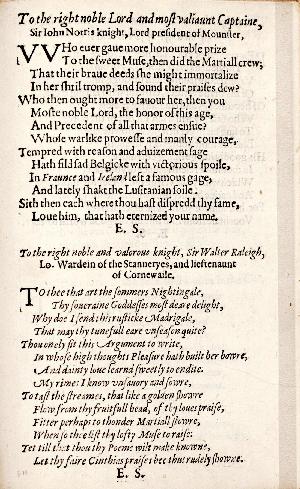 To the right noble Lord and most valiaunt Captaine,
Sir Iohn Norris knight, Lord president of Mounster,
VVHo euer gaue more honourable prize
To the sweet Muse, then did the Martiall crew;
That their braue deeds she might immortalize
In her shril tromp, and sound their praises dew?
Who then ought more to fauour her, then you
Moste noble Lord, the honor of this age,
And Precedent of all that armes ensue?
Whose warlike prowesse and manly courage,
Tempred with reason and aduizement sage
Hath fild sad Belgicke with victorious spoile,
In Fraunce and Ireland left a famous gage,
And lately shakt the Lusitanian soile.
Sith then each where thou hast dispredd thy fame,
Loue him, that hath eternized your name.
E. S.
To the right noble and valorous knight, Sir Walter Raleigh,
Lo. Wardein of the Stanneryes, and lieftenaunt
of Cornewaile.
TO thee that art the sommers Nightingale,
Thy soueraine Goddesses most deare delight,
Why doe I send this rusticke Madrigale,
That may thy tunefull eare vnseason quite?
Thou onely fit this Argument to write,
In whose high thoughts Pleasure hath built her bowre,
And dainty loue learnd sweetly to endite.
My rimes I know vnsauory and sowre,
To tast the streames, that like a golden showre
Flow from thy fruitfull head, of thy loues praise,
Fitter perhaps to thonder Martiall stowre,
When so thee list thy lofty Muse to raise:
Yet till that thou thy Poeme wilt make knowne,
Let thy faire Cinthias praises bee thus rudely showne.
E. S.